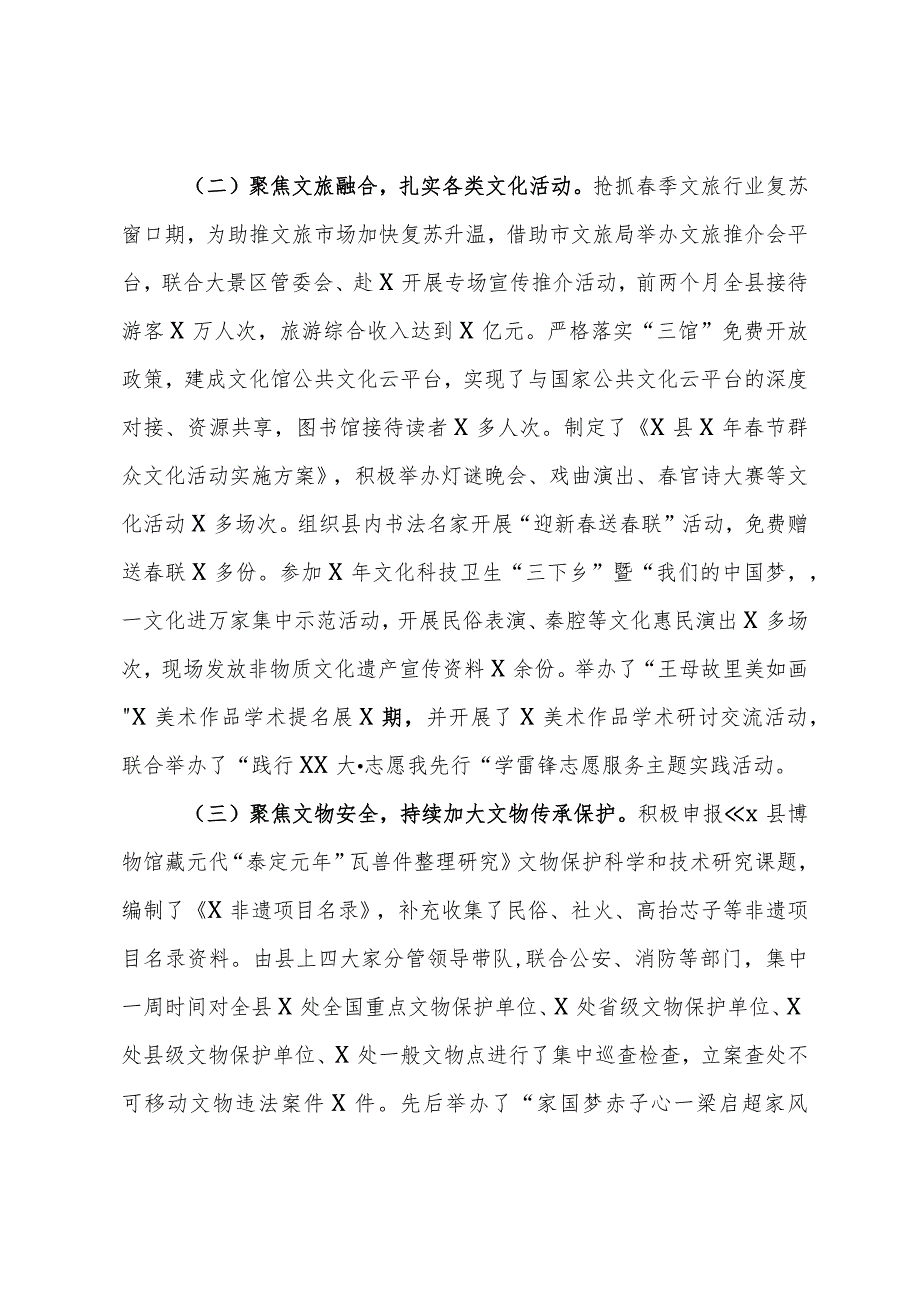 （二）聚焦文旅融合，扎实各类文化活动。抢抓春季文旅行业复苏
窗口期，为助推文旅市场加快复苏升温，借助市文旅局举办文旅推介会平
台，联合大景区管委会、赴 X 开展专场宣传推介活动，前两个月全县接待
游客 X 万人次，旅游综合收入达到 X 亿元。严格落实“三馆”免费开放
政策，建成文化馆公共文化云平台，实现了与国家公共文化云平台的深度
对接、资源共享，图书馆接待读者 X 多人次。制定了《X 县 X 年春节群
众文化活动实施方案》，积极举办灯谜晚会、戏曲演出、春官诗大赛等文
化活动 X 多场次。组织县内书法名家开展“迎新春送春联”活动，免费赠
送春联 X 多份。参加 X 年文化科技卫生“三下乡”暨“我们的中国梦，,
一文化进万家集中示范活动，开展民俗表演、秦腔等文化惠民演出 X 多场
次，现场发放非物质文化遗产宣传资料 X 余份。举办了“王母故里美如画
"X 美术作品学术提名展 X 期，并开展了 X 美术作品学术研讨交流活动，
联合举办了“践行 XX 大•志愿我先行“学雷锋志愿服务主题实践活动。
（三）聚焦文物安全，持续加大文物传承保护。积极申报≪x 县博
物馆藏元代“泰定元年”瓦兽件整理研究》文物保护科学和技术研究课题，
编制了《X 非遗项目名录》，补充收集了民俗、社火、高抬芯子等非遗项
目名录资料。由县上四大家分管领导带队,联合公安、消防等部门，集中
一周时间对全县 X 处全国重点文物保护单位、X 处省级文物保护单位、X
处县级文物保护单位、X 处一般文物点进行了集中巡查检查，立案查处不
可移动文物违法案件 X 件。先后举办了“家国梦赤子心一梁启超家风